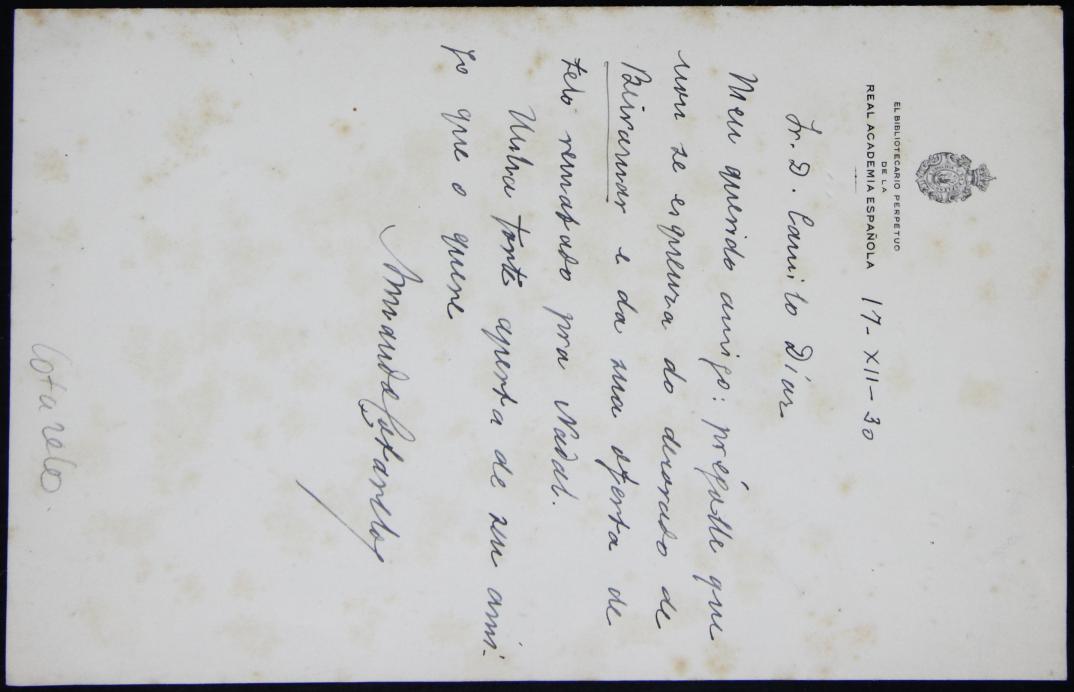 EL BIBLIOTECARIO PERPETUO
DE LA
REAL ACADEMIA ESPAÑOLA
17-XII-30
Sr. D. Camilo Díaz
Meu querido amigo: prégolle que
non se esqueuza do decorado de
Beiramar e da sua oferta de
telo rematado pra Nadal.
Unha forte aperta de seu ami-
go que o quere
Armando Cotarelo
Cotarelo